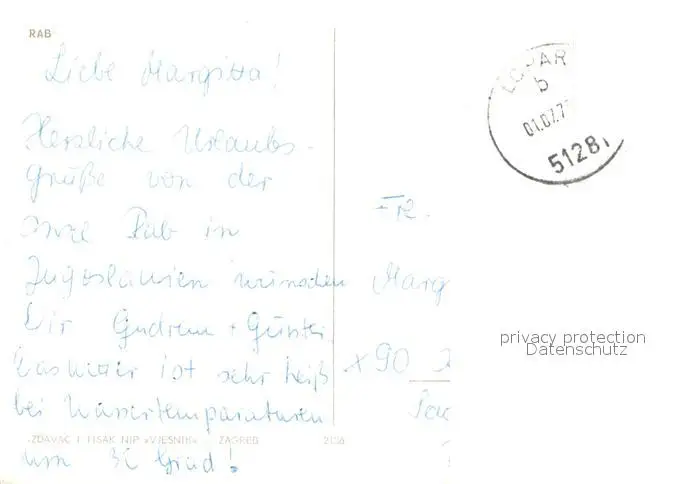 RAB
Liebe Margitta!
Herzliche Urlaubs-
grüße von der
Insel Rab in
Jugoslawien wünschen
Dir Gudrun + Günter
Das Wetter ist sehr heiß
bei Wassertemperaturen
um Grad!
IZDAVAČ I TISAK NIP »VJESNIK« ZAGREB
LOPAR
b
01.07.7
5128
Fr.
Marg
X90
privacy protection
Datenschutz